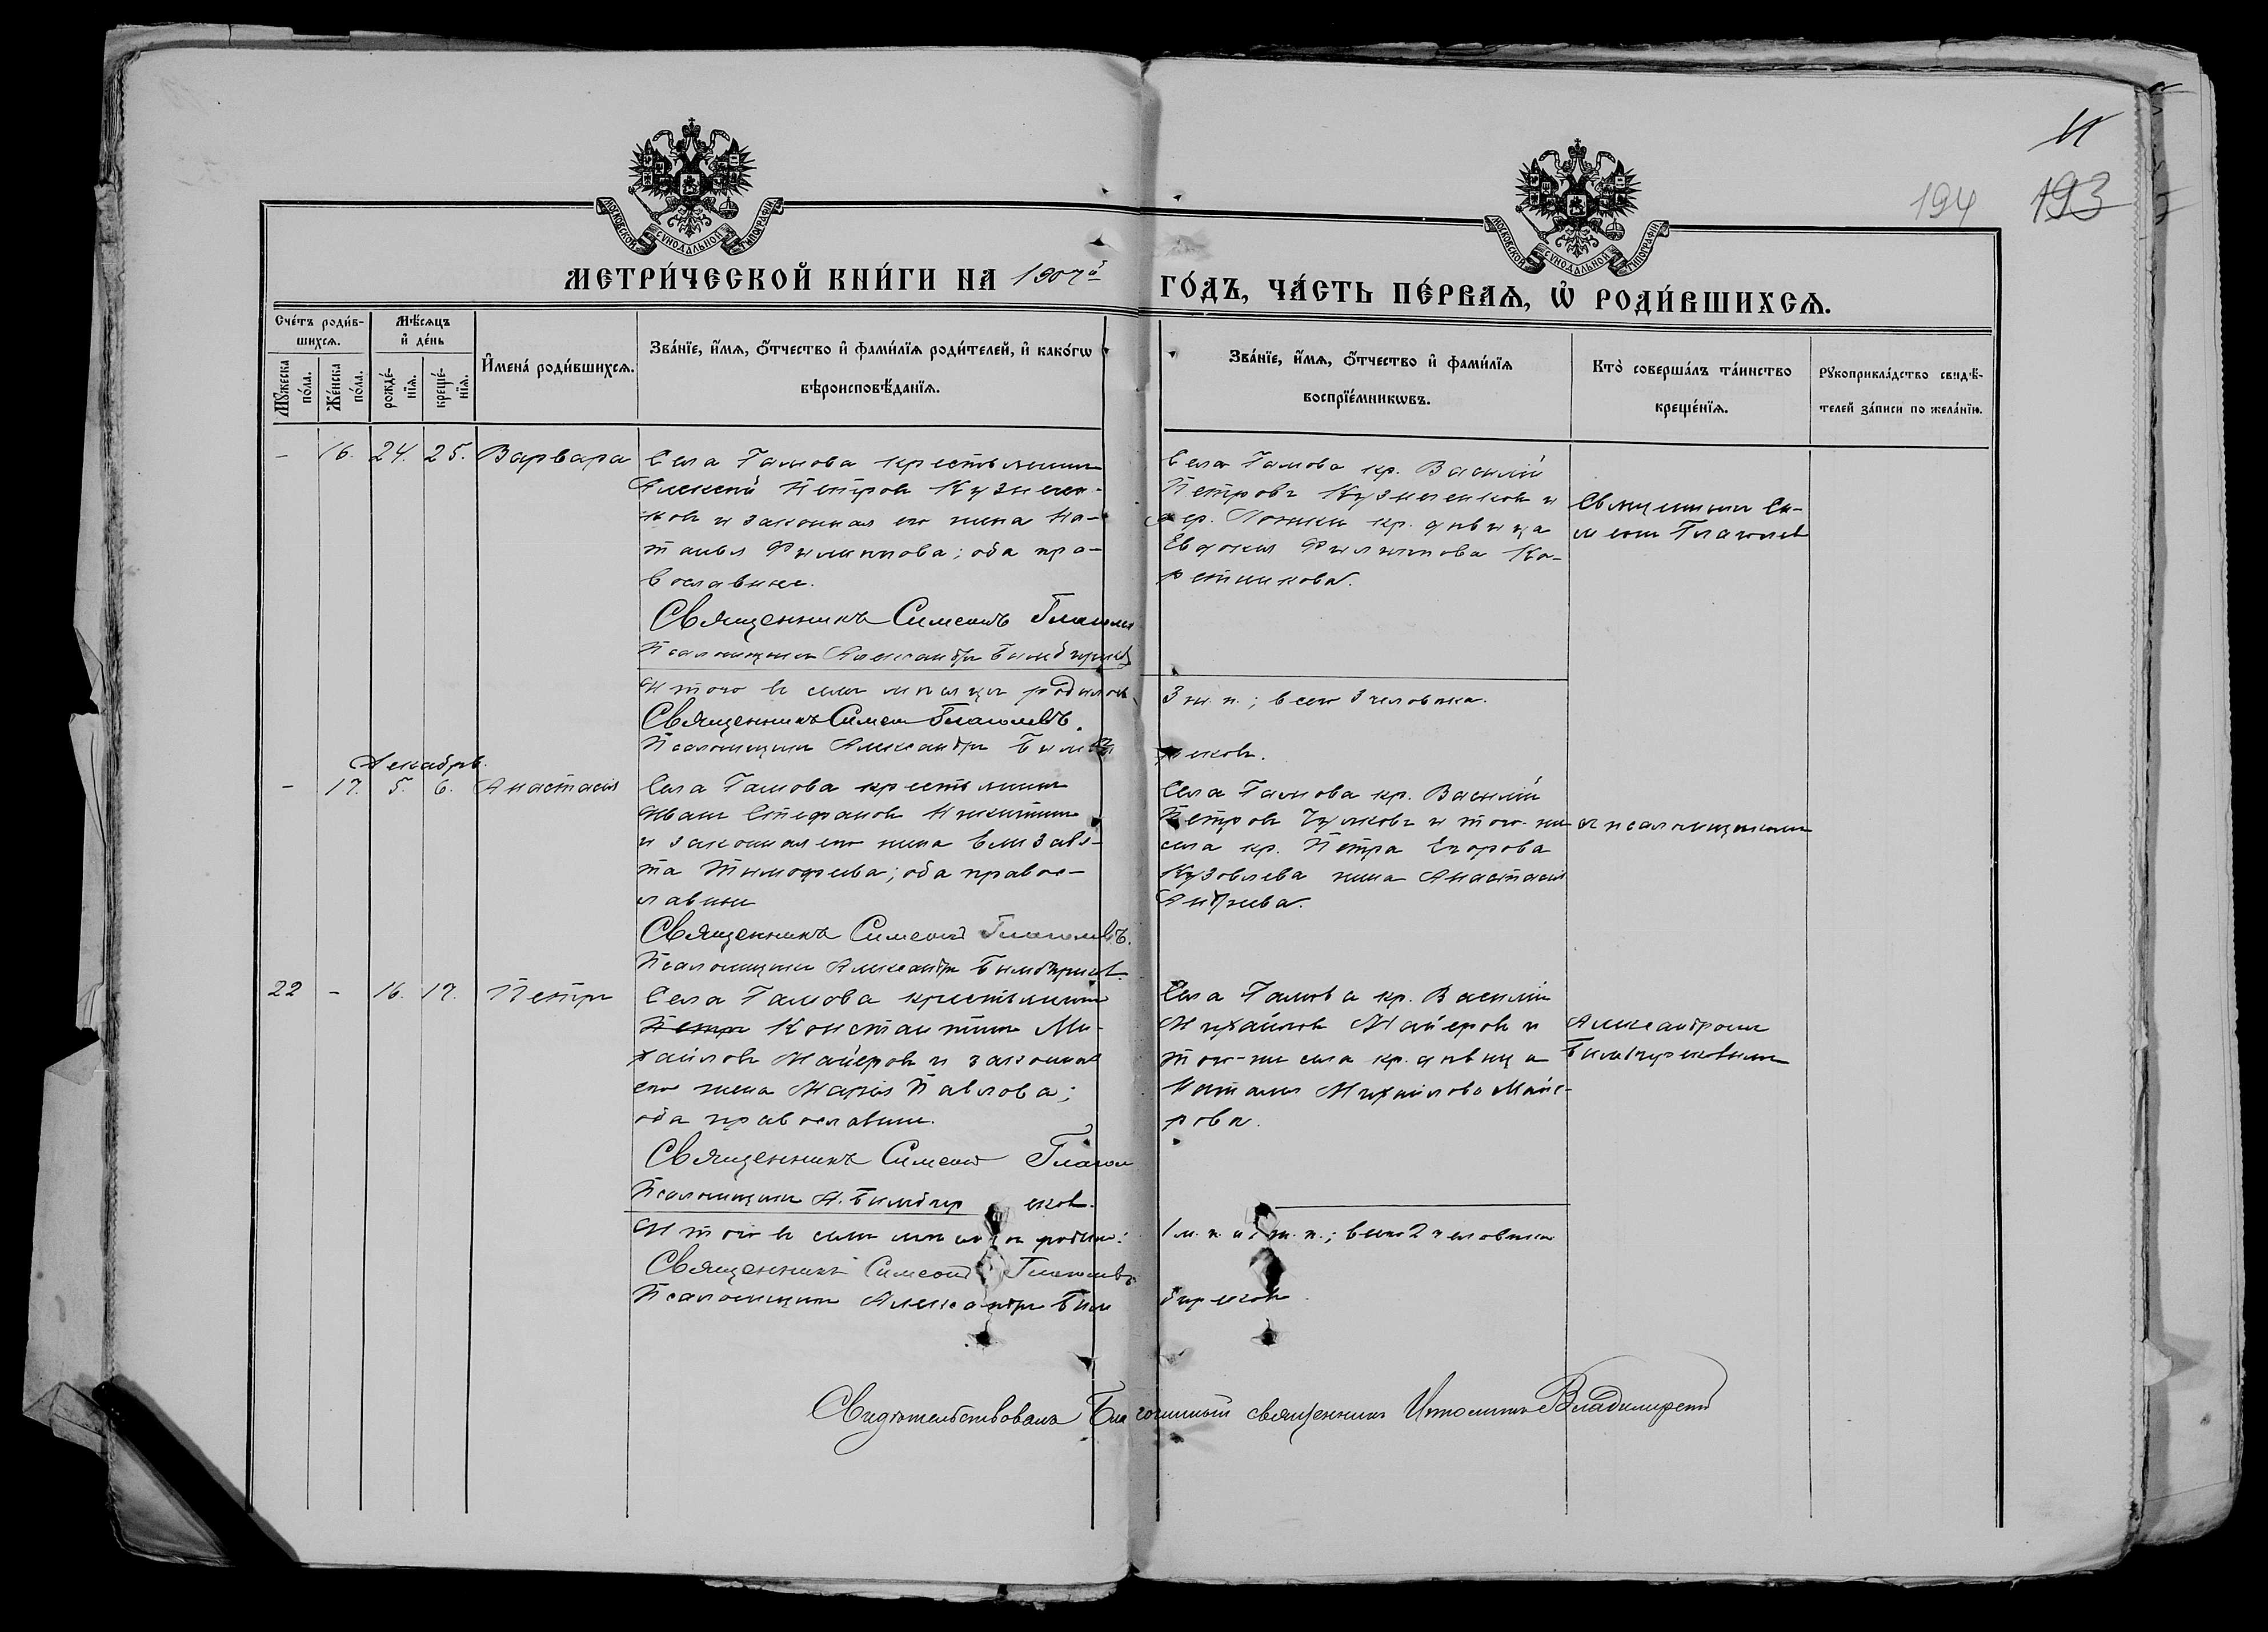 11
194 193
МОСКОВСКОЙ СѴНОДАЛЬНОЙ ТИПОГРАФІИ
МОСКОВСКОЙ СѴНОДАЛЬНОЙ ТИПОГРАФІИ
МЕТРИ́ЧЕСКОЙ КНИ́ГИ НА 1907й ГО́ДЪ, ЧА́СТЬ ПЕ́РВАѦ, Ѡ҆ РОДИ́ВШИХСѦ.
Сче́тъ роди́в-
шихсѧ.
Мꙋ́жеска по́ла.
Же́нска по́ла.
Мѣ́сѧцъ
и҆ де́нь
рожде́-
нїѧ.
креще́-
нїѧ.
И҆мена̀ роди́вшихсѧ.
Зва́нїе, и҆́мѧ, ѻ҆́тчество и҆ фами́лїѧ роди́телей, и҆ како́гѡ
вѣроисповѣ́данїѧ.
Зва́нїе, и҆́мѧ, ѻ҆́тчество и҆ фами́лїѧ
воспрїе́мникѡвъ.
Кто̀ соверша́лъ та́инство
креще́нїѧ.
Рꙋкоприкла́дство свидѣ́-
телей за́писи по жела́нїю.
– 16. 24. 25. Варвара
Села Гамова крестьянинъ
Алексей Петровъ Кузнечен-
ковъ и законная его жена На-
талья Филиппова; оба пра-
вославные.
Священникъ Симеонъ Глаголев
Псаломщикъ Александръ
Села Гамова кр. Василій
Петровъ Кузнеченковъ и
дер. кр. дѣвица
Евдокія Филиппова Ка-
ретникова.
Священникъ Си-
меонъ Глаголев
Итого въ семъ мѣсяцѣ родилось
3 ж. п.; всего 3 человѣка.
Священникъ Симеон Глаголевъ.
Псаломщикъ Александръ
Декабрь.
– 17. 5. 6. Анастасія
Села Гамова крестьянинъ
Иванъ Стефановъ Никитинъ
и законная его жена Елизаве-
та Тимофеева; оба правос-
лавные
Священникъ Симеонъ Глаголевъ.
Псаломщикъ Александръ
Села Гамова кр. Василій
Петровъ Чулковъ и того-же
села кр. Петра Егорова
Кузовлева жена Анастасія
Андреева.
съ псаломщикомъ
22 – 16. 17. Петръ
Села Гамова крестьянинъ
Петръ Константинъ Ми-
хайловъ Майеровъ и законная
его жена Марія Павлова;
оба православные.
Священникъ Симеонъ Глагол
Псаломщикъ А.
Села Гамова кр. Василій
Михайловъ Майеровъ и
того-же села кр. дѣвица
Наталія Михайлова Майе-
рова.
Александромъ
Итого въ семъ мѣсяцѣ родил.:
1 м. п. и 1 ж. п.; всего 2 человѣка
Священникъ Симеонъ Глаголевъ
Псаломщикъ Александръ
Свидѣтельствовалъ Благочинный священникъ Владимирскій